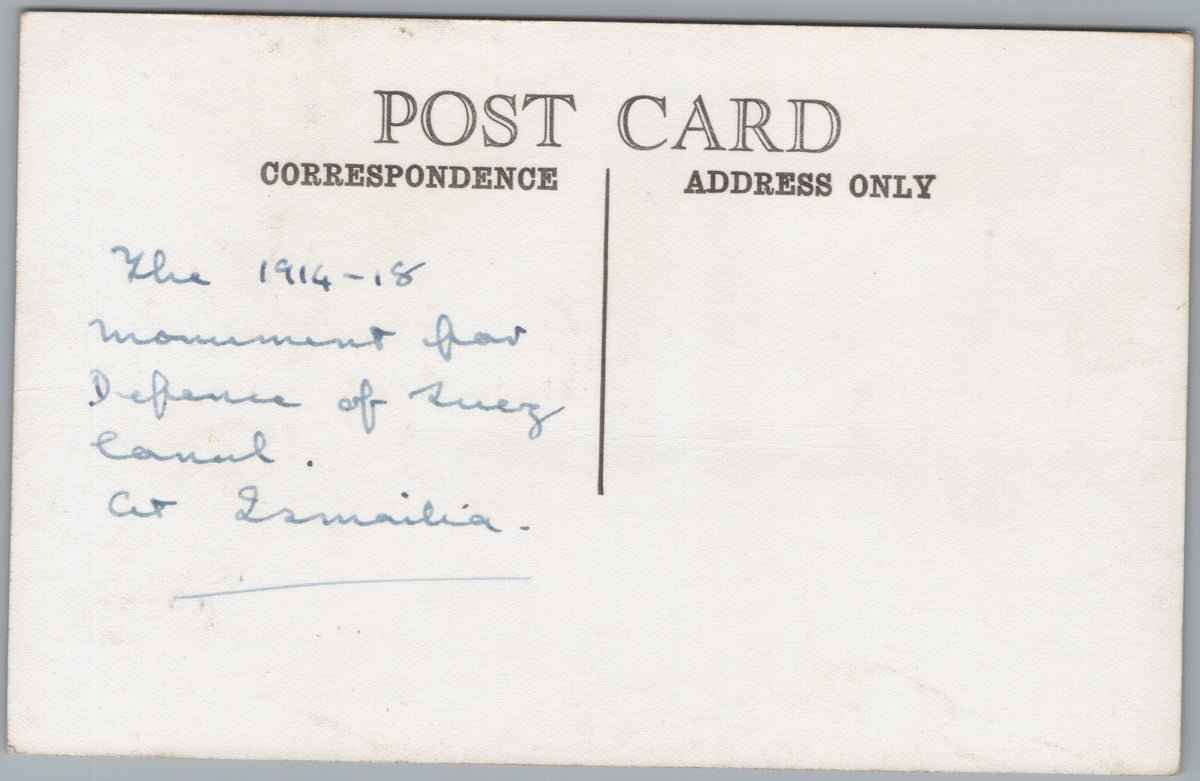 POST CARD
CORRESPONDENCE
ADDRESS ONLY
The 1914-18
monument for
Defence of Suez
Canal.
At Ismailia.